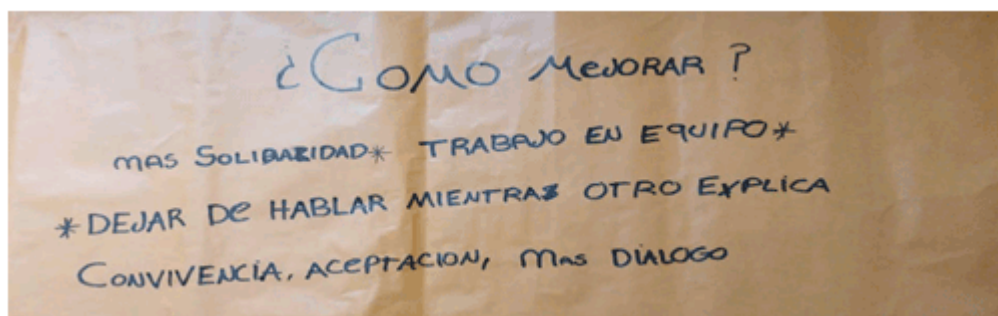 ¿COMO MEJORAR?
MAS SOLIDARIDAD* TRABAJO EN EQUIPO*
*DEJAR DE HABLAR MIENTRAS OTRO EXPLICA
CONVIVENCIA, ACEPTACION, MAS DIALOGO